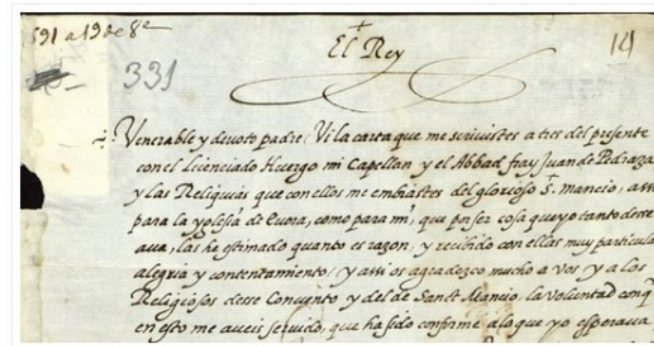 591 a 19 de 8e
El Rey
14
331
Venerable y devoto padre. Vi la carta que me scriuistes a tres del presente
con el licenciado Huergo mi Capellan y el Abbad fray Juan de Pedraza
y las Reliquias que con ellos me embiastes del glorioso S. Mancio, assi
para la yglesia de Euora, como para mi, que por ser cosa que yo tanto desse
aua, las he estimado quanto es razon, y recibido con ellas muy particular
alegria y contentamiento, y assi os agradezco mucho a vos y a los
Religiosos desse Conuento y del de Sanct Mancio, la voluntad conq
en esto me aueis seruido, que ha sido conforme a lo que yo esperaua